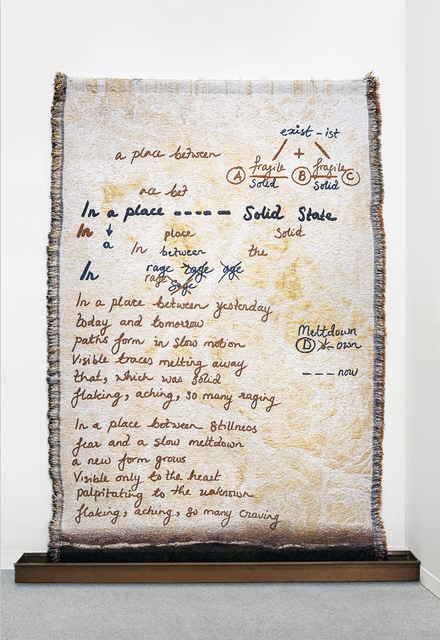 exist-ist
a place between
+
fragile fragile
A Solid B Solid C
ace bet
In a place ----- Solid State
In place Solid
a In between the
In rage rage age
rage
In a place between yesterday
today and tomorrow
paths form in slow motion
Visible traces melting away
that, which was solid
flaking, aching, so many raging
Meltdown
D own
---now
In a place between stillness
fear and a slow meltdown
a new form grows
Visible only to the heart
palpitating to the unknown
flaking, aching, so many craving